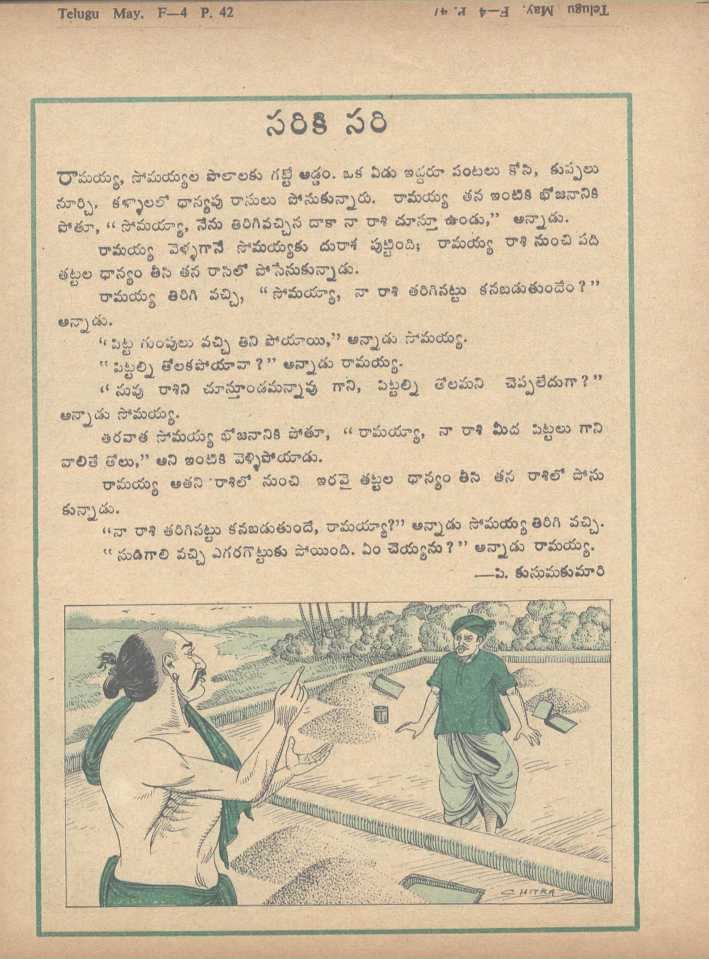 Telugu May. F—4 P. 42
Telugu May. F—4 P. 41
సరికి సరి
రామయ్య, సోమయ్యల పొలాలకు గట్టే అడ్డం. ఒక ఏడు ఇద్దరూ పంటలు కోసి, కుప్పలు
నూర్చి, కళ్ళాలలో ధాన్యపు రాసులు పోసుకున్నారు. రామయ్య తన ఇంటికి భోజనానికి
పోతూ, “ సోమయ్యా, నేను తిరిగివచ్చిన దాకా నా రాశి చూస్తూ ఉండు,” అన్నాడు.
రామయ్య వెళ్ళగానే సోమయ్యకు దురాశ పుట్టింది; రామయ్య రాశి నుంచి పది
తట్టల ధాన్యం తీసి తన రాసిలో పోసేసుకున్నాడు.
రామయ్య తిరిగి వచ్చి, “ సోమయ్యా, నా రాశి తరిగినట్టు కనబడుతుందేం ? ”
అన్నాడు.
“ పిట్ట గుంపులు వచ్చి తిని పోయాయి,” అన్నాడు సోమయ్య.
“ పిట్టల్ని తోలకపోయావా ? ” అన్నాడు రామయ్య.
“ నువు రాశిని చూస్తూండమన్నావు గాని, పిట్టల్ని తోలమని చెప్పలేదుగా ? ”
అన్నాడు సోమయ్య.
తిరవాత సోమయ్య భోజనానికి పోతూ, “ రామయ్యా, నా రాశి మీద పిట్టలు గాని
వాలితే తోలు,” అని ఇంటికి వెళ్ళిపోయాడు.
రామయ్య అతని రాశిలో నుంచి ఇరవై తట్టల ధాన్యం తీసి తన రాశిలో పోసు
కున్నాడు.
“నా రాశి తరిగినట్టు కనబడుతుందే, రామయ్యా?” అన్నాడు సోమయ్య తిరిగి వచ్చి.
“ సుడిగాలి వచ్చి ఎగరగొట్టుకు పోయింది. ఏం చెయ్యను ? ” అన్నాడు రామయ్య.
—పి. కుసుమకుమారి
CHITRA